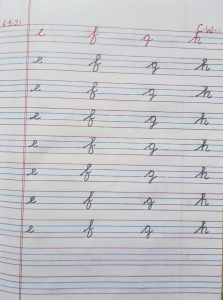 C.W.
e f g h
e f g h
e f g h
e f g h
e f g h
e f g h
e f g h
e f g h